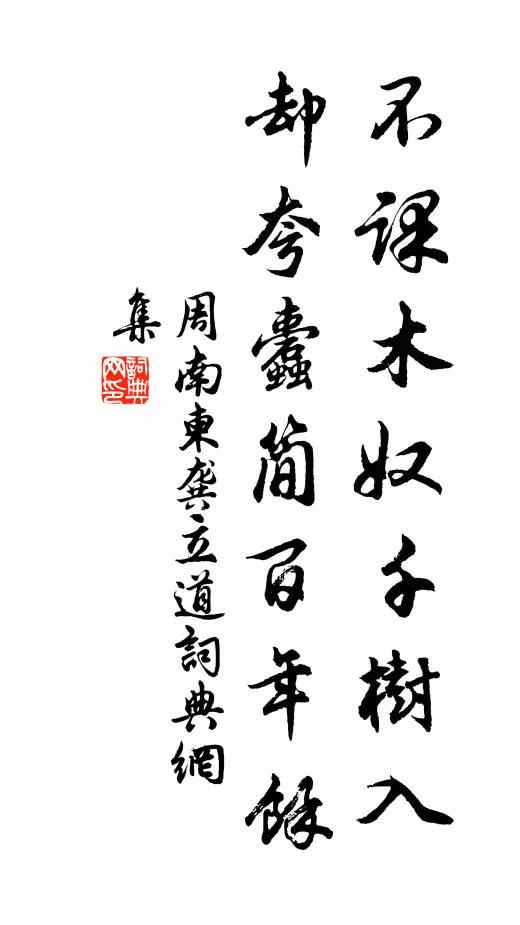 不課木奴千樹入
却夸蠹簡百年餘
周南東龔立道詞典網
集
詞典
网印